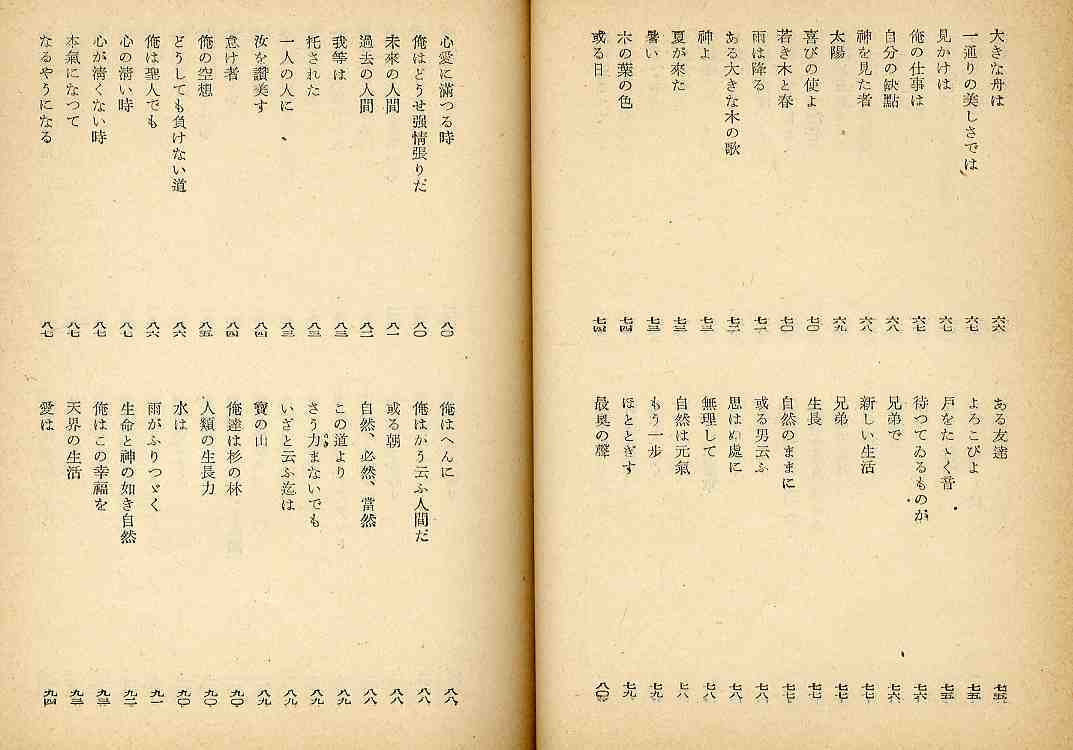 大きな舟は 六六
一通りの美しさでは 六七
見かけは 六七
俺の仕事は 六七
自分の缺點 六八
神を見た者 六八
太陽 六九
喜びの使よ 七〇
若き木と春 七〇
雨は降る 七一
ある大きな木の歌 七二
神よ 七三
夏が來た 七三
暑い 七三
木の葉の色 七四
或る日 七四
ある友達 七五
よろこびよ 七五
戸をたゝく音 七五
待つてゐるものが 七六
兄弟で 七六
新しい生活 七七
兄弟 七七
生長 七七
自然のままに 七七
或る男云ふ 七八
思はぬ處に 七八
無理して 七八
自然は元氣 七八
もう一歩 七九
ほととぎす 七九
最奥の聲 八〇
心愛に滿つる時 八〇
俺はどうせ强情張りだ 八〇
未來の人間 八一
過去の人間 八二
我等は 八三
托された 八三
一人の人に 八三
汝を讃美す 八四
怠け者 八四
俺の空想 八五
どうしても負けない道 八六
俺は聖人でも 八六
心の淸い時 八七
心が淸くない時 八七
本氣になつて 八七
なるやうになる 八七
俺はへんに 八八
俺はかう云ふ人間だ 八八
或る朝 八八
自然、必然、當然 八八
この道より 八九
さう力まないでも 八九
いざと云ふ迄は 八九
寶の山 八九
俺達は杉の林 九〇
人類の生長力 九〇
水は 九〇
雨がふりつゞく 九一
生命と神の如き自然 九二
俺はこの幸福を 九三
天界の生活 九三
愛は 九四